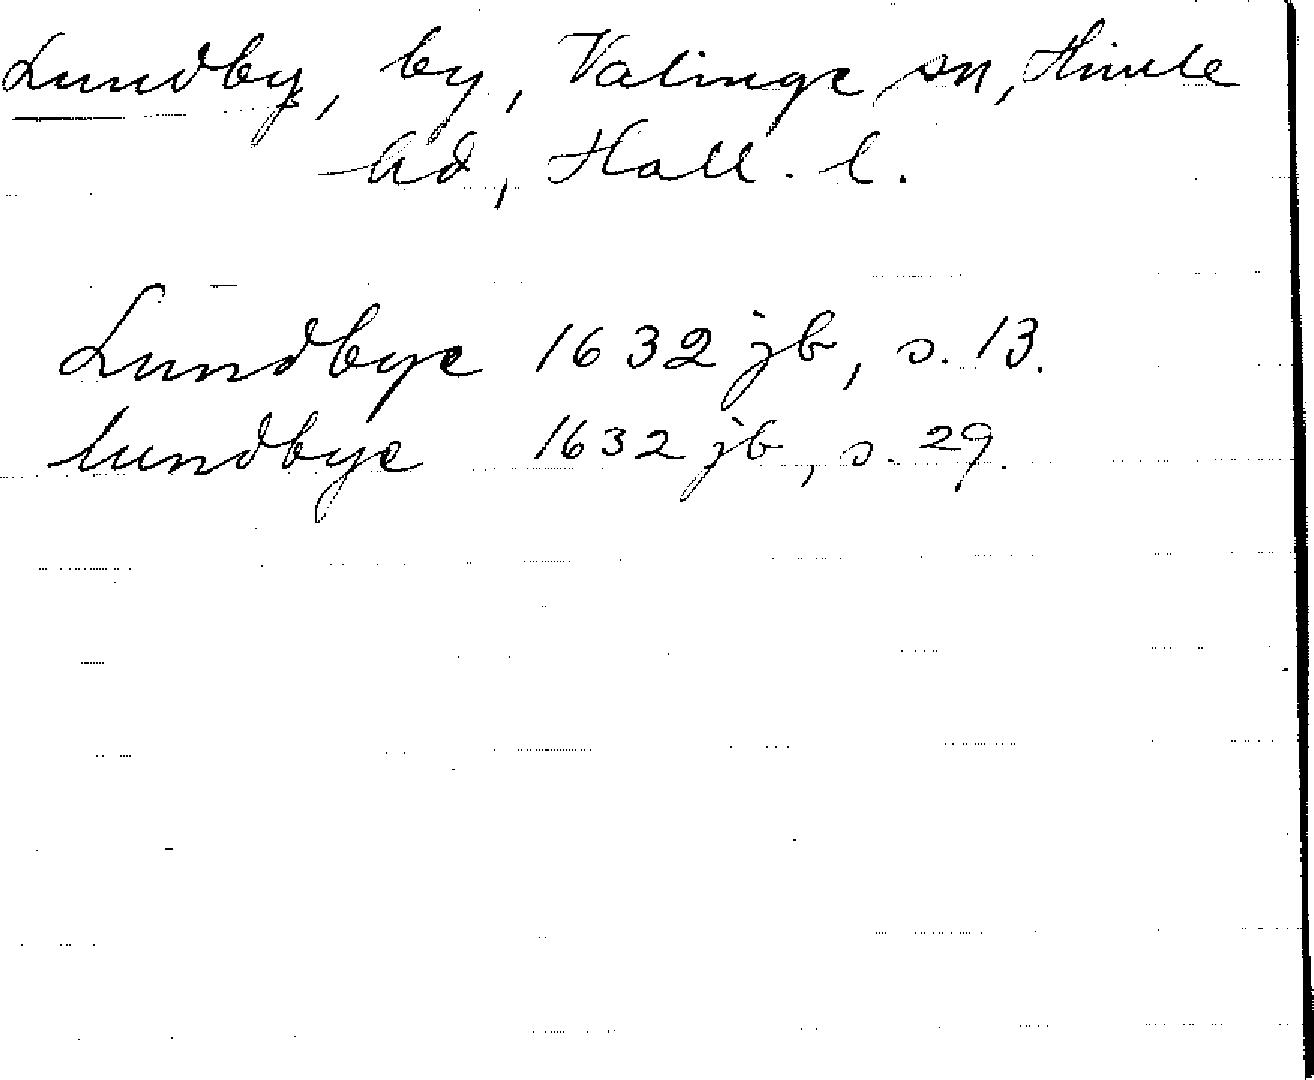 Lundby, by, Valinge sn, Himle
hd, Hall. l.
Lundbye 1632 jb, s. 13.
lundbye 1632 jb, s. 29.